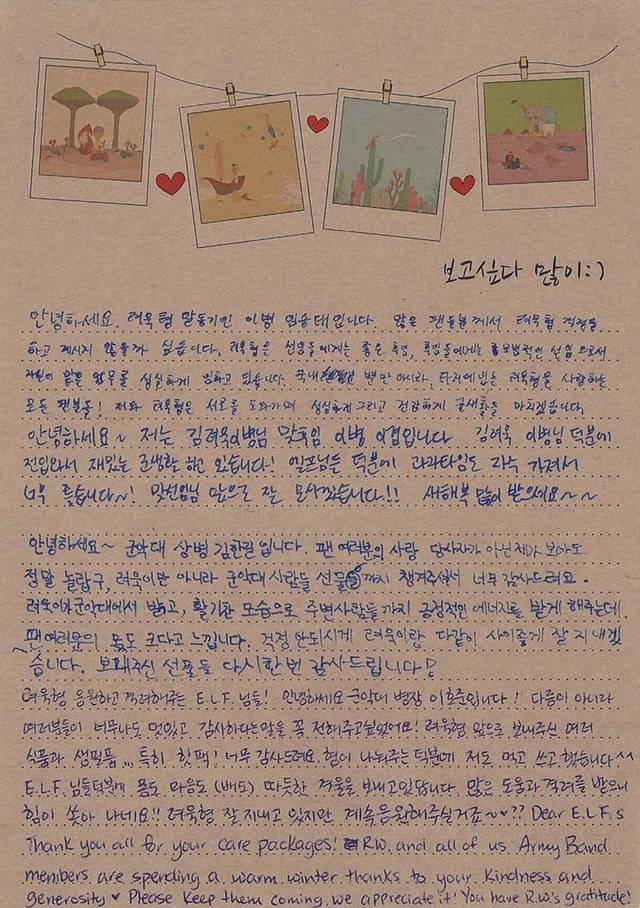 보고싶다 많이:)
안녕하세요. 려욱형 맞동기인 이병 임승태입니다. 많은 팬들분께서 려욱형 걱정을
하고 계시지 않을까 싶습니다. 려욱형은 선임들에게는 좋은 후임, 후임들에게는 모범적인 선임으로서
자신이 맡은 임무를 성실하게 임하고 있습니다. 국내 뿐만 아니라, 타지에있는 려욱형을 사랑하는
모든 팬분들! 저와 려욱형은 서로를 도와가며 성실하게 그리고 건강하게 군생활을 마치겠습니다.
안녕하세요~ 저는 김려욱이병님 맞후임 이병 입니다 김려욱 이병님 덕분에
전입와서 재밌는 군생활 하고 있습니다! 엘프님들 덕분에 과자타임도 자주 가져서
너무 좋습니다~! 맞선임님 앞으로 잘 모시겠습니다!! 새해복 많이 받으세요~~
안녕하세요~ 군악대 상병 김한길 입니다. 팬 여러분의 사랑 당사자가 아닌 제가 보아도
정말 놀랍구, 려욱이만 아니라 군악대 사람들 선물까지 챙겨주셔서 너무 감사드려요.
려욱이가 군악대에서 밝고, 활기찬 모습으로 주변사람들까지 긍정적인 에너지를 받게 해주는데
팬 여러분의 몫도 크다고 느낍니다. 걱정 안되시게 려욱이랑 다같이 사이좋게 잘 지내겠
습니다. 보내주신 선물들 다시한번 감사드립니다!
려욱형 응원하고 격려해주는 E.L.F 님들! 안녕하세요 군악대 병장 이호준입니다! 다름이 아니라
여러분들이 너무나도 멋있고 감사하다는 말을 꼭 전해주고 싶었어요! 려욱형 앞으로 보내주신 여러
식품과 생필품... 특히 핫팩! 너무 감사드려요. 형이 나눠주는 덕분에 저도 먹고 쓰고 했습니다^^
E.L.F 님들덕분에 몸도 마음도 (배도) 따듯한 겨울을 보내고있답니다. 많은 도움과 격려를 받으니
힘이 솟아 나네요!! 려욱형 잘 지내고 있지만 계속 응원해주실거죠~♥?? Dear E.L.F s
Thank you all for your care packages! R.W. and all of us Army Band
members are spending a warm winter thanks to your kindness and
generosity ♥ Please keep them coming, we appreciate it! You have R.W's gratitude!